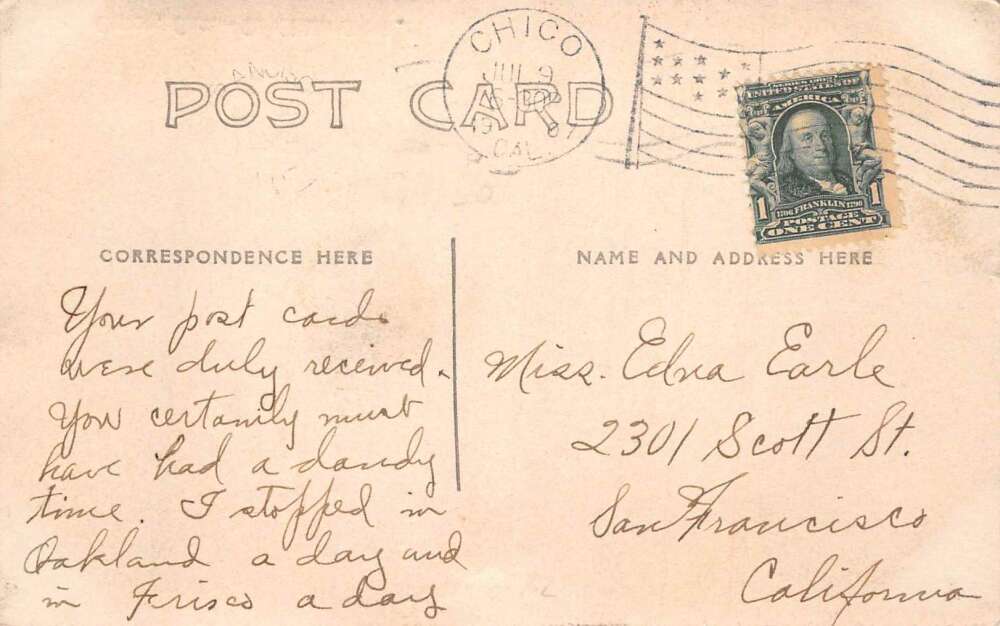 CHICO
JUL 9
CAL.
POST CARD
SERIES 1902
UNITED STATES OF
AMERICA
1706 FRANKLIN 1790
1 1
POSTAGE
ONE CENT
CORRESPONDENCE HERE
NAME AND ADDRESS HERE
Your post cards
were duly received.
You certanily must
have had a dandy
time. I stopped in
Oakland a day and
in Frisco a day
Miss. Edna Earle
2301 Scott St.
San Francisco
California